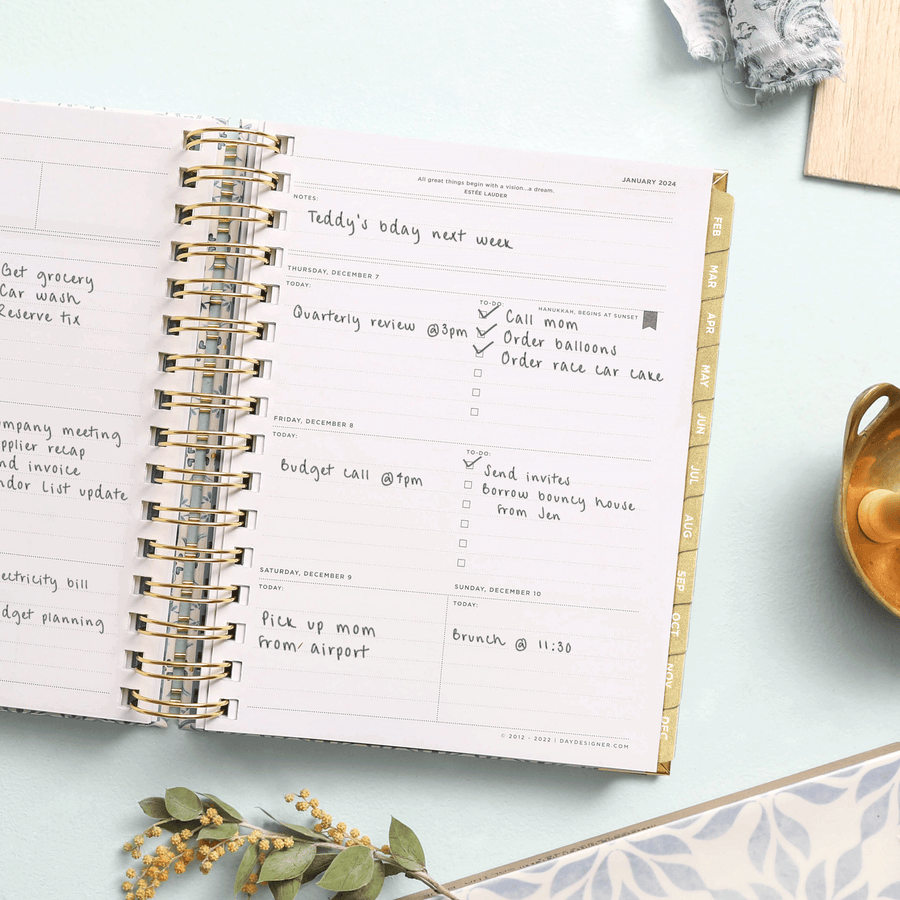 Get grocery
Car wash
Reserve tix
meeting
recap
invoice
List update
bill
planning
All great things begin with a vision...a dream.
ESTÉE LAUDER
JANUARY 2024
NOTES:
Teddy's bday next week
THURSDAY, DECEMBER 7
TODAY:
Quarterly review @3pm
TO-DO:
HANUKKAH, BEGINS AT SUNSET
Call mom
Order balloons
Order race car cake
FRIDAY, DECEMBER 8
TODAY:
Budget call @4pm
TO-DO:
Send invites
Borrow bouncy house
from Jen
SATURDAY, DECEMBER 9
TODAY:
Pick up mom
from airport
SUNDAY, DECEMBER 10
TODAY:
Brunch @ 11:30
© 2012 - 2022 | DAYDESIGNER.COM
FEB
MAR
APR
MAY
JUN
JUL
AUG
SEP
OCT
NOV
DEC